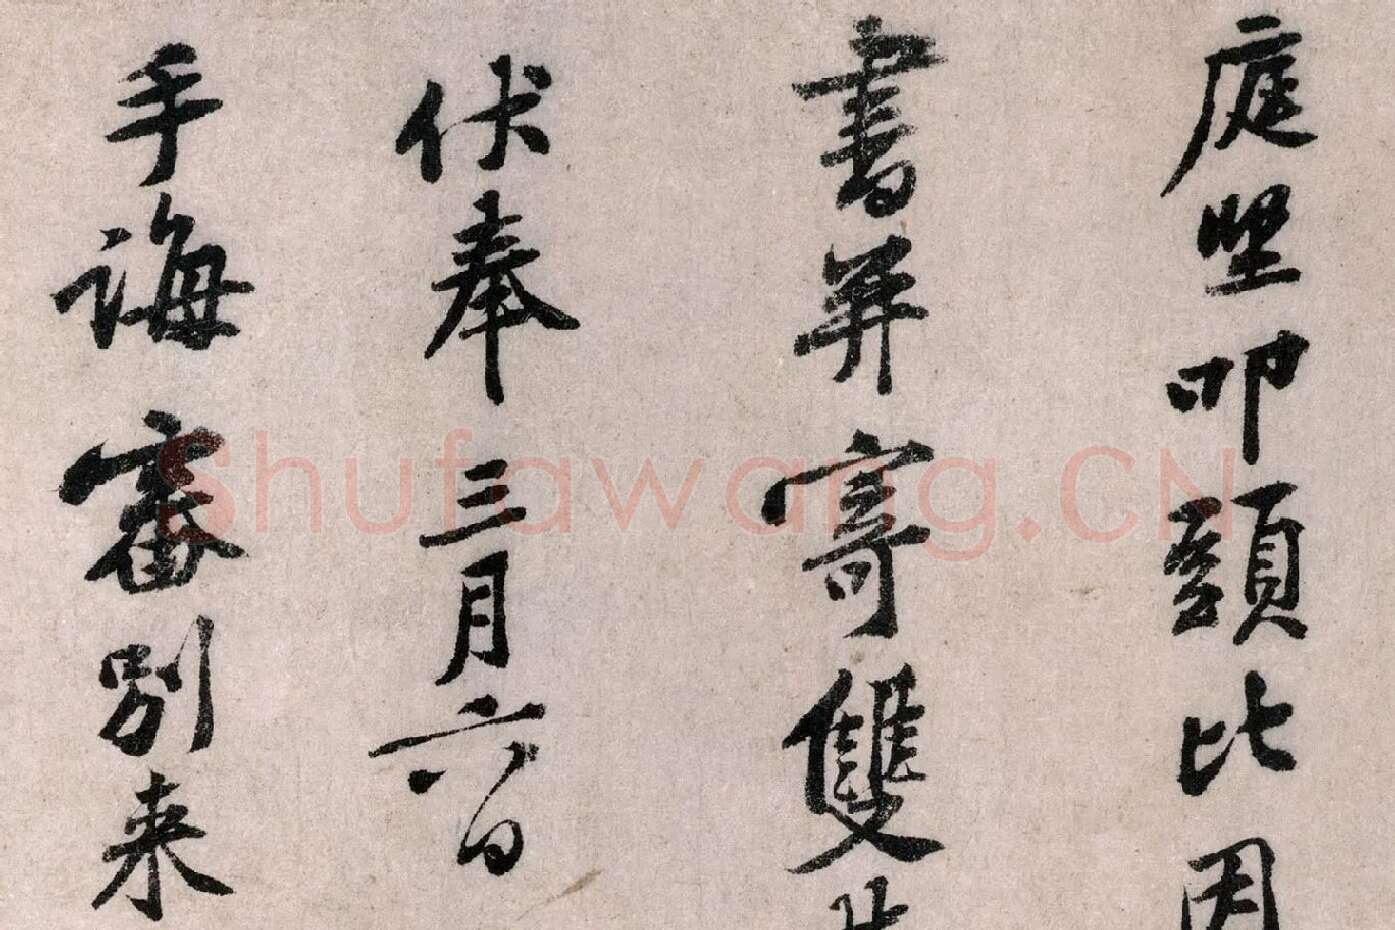 庭堅叩頭比因
書并寄雙井
伏奉三月六日
手誨審別来
Shufawang.CN